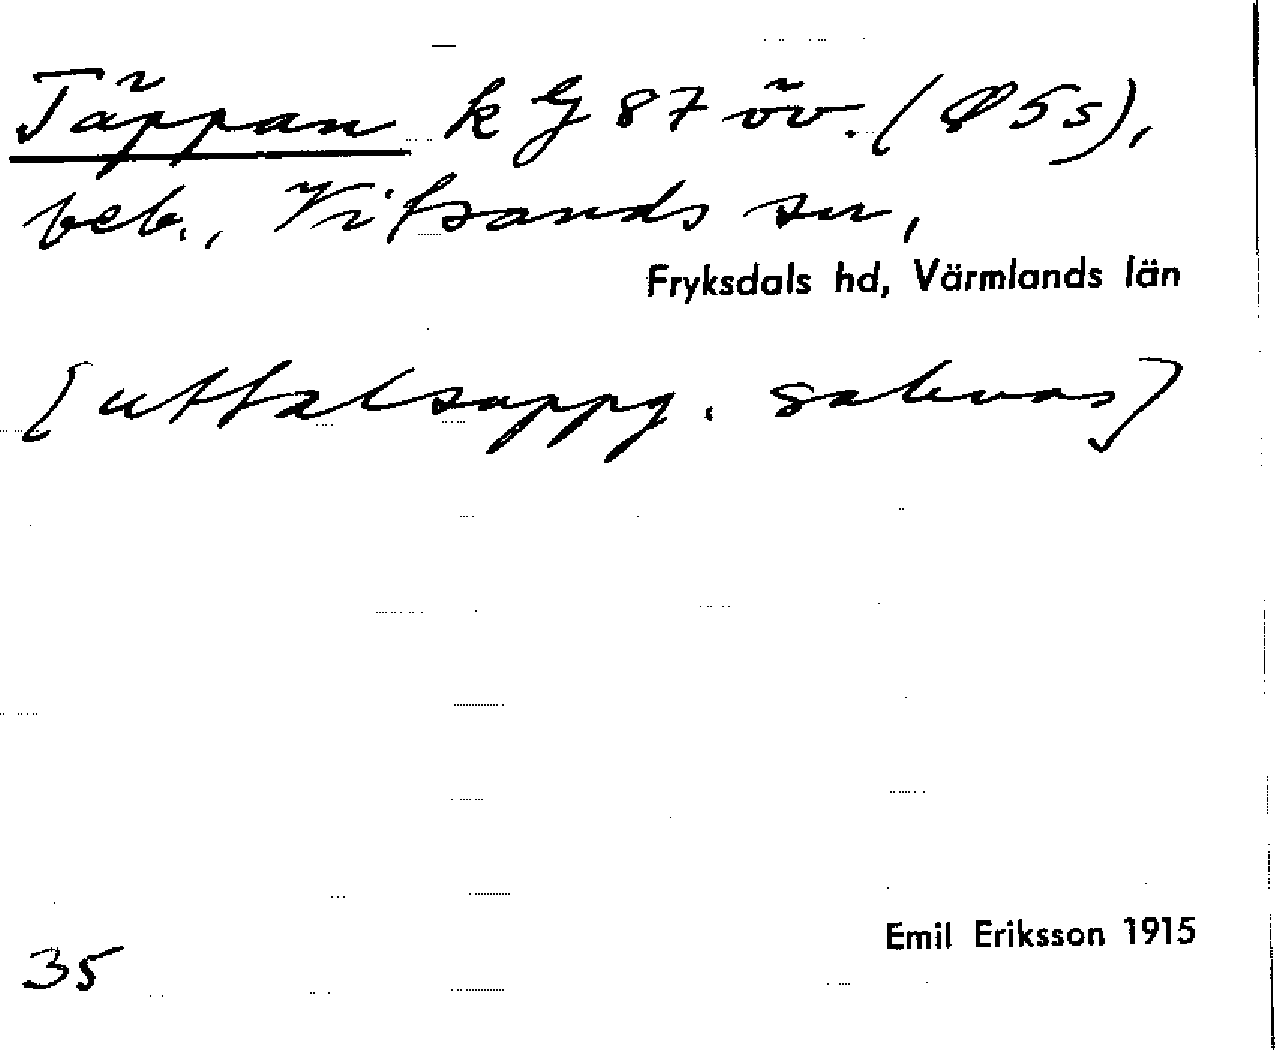 Täppan k G 87 öv. (Ø 5s),
beb., Vitsands sn,
Fryksdals hd, Värmlands län
[uttalsuppg. saknas]
Emil Eriksson 1915
35